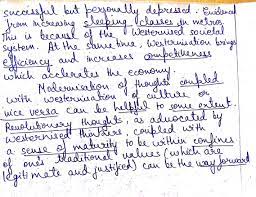 successful but personally depressed. Evidenced
from increasing sleeping classes in metros
This is because of the westernised societal
system. At the same time, westernisation brings
efficiency and increases competitiveness
which accelerates the economy.
Modernisation of thoughts coupled
with westernisation of culture or
vice versa can be helpful to some extent.
Revolutionary thoughts, as advocated by
westernised thinkers, coupled with
a sense of maturity to be within confines
of ones traditional values (which are
legitimate and justified) can be the way forward